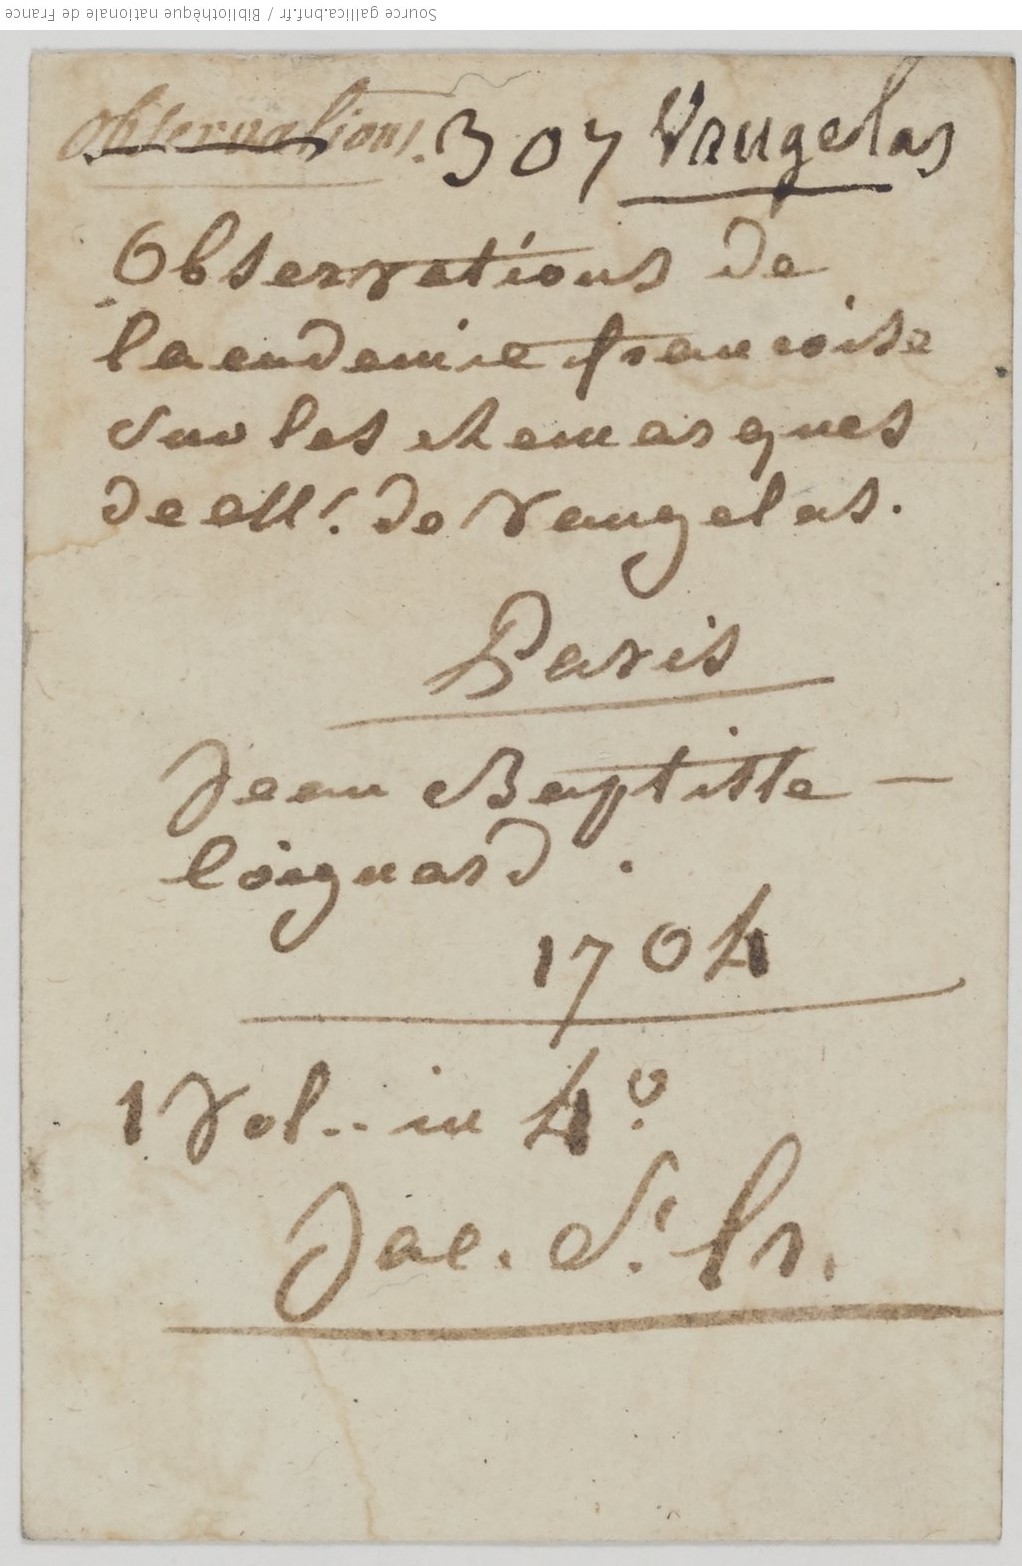 Source gallica.bnf.fr / Bibliothèque nationale de France
Observations. 307 Vaugelas
Observations de
lacademie françoise
Sur les Remarques
de Mr. de Vaugelas.
Paris
Jean Baptiste —
Coignard.
1704
1 Vol.. in 4º.
Jac. St. hr.